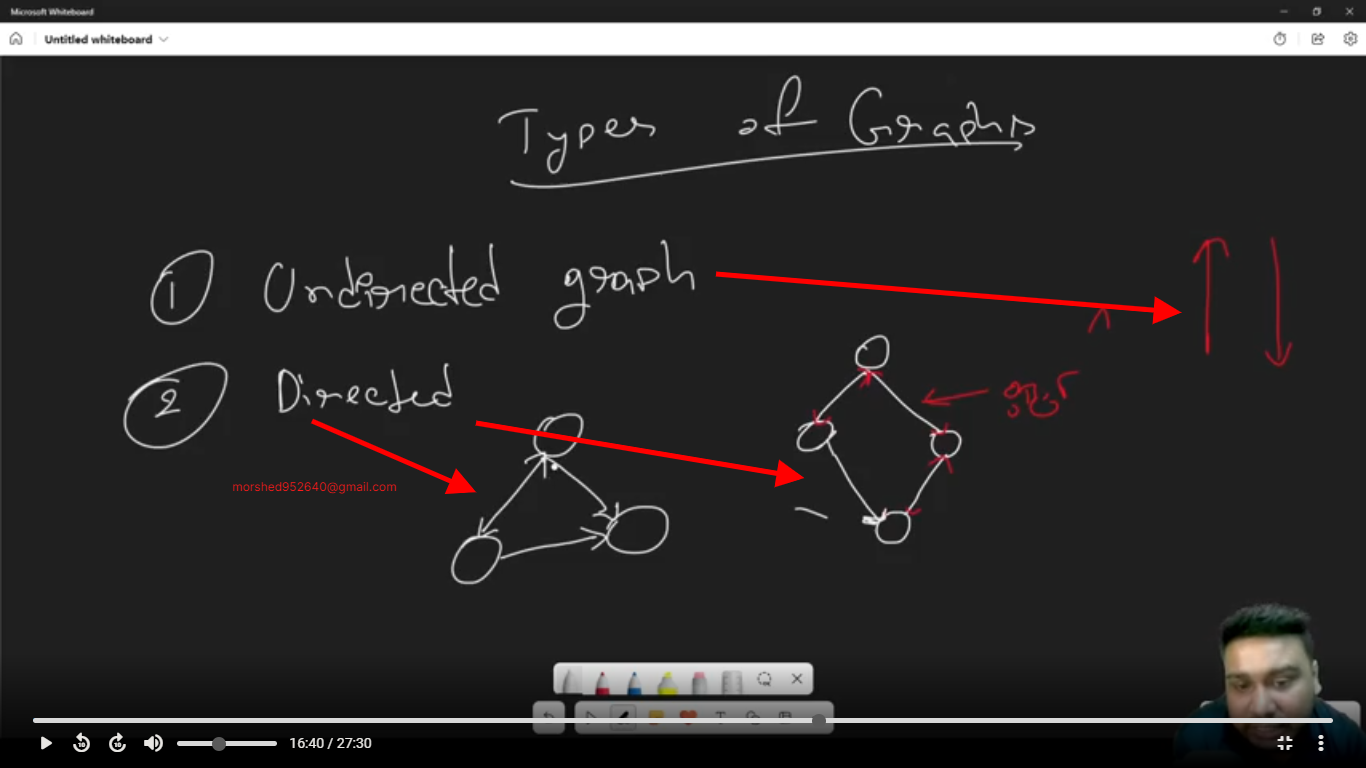 Microsoft Whiteboard
Untitled whiteboard
Types of Graphs
1 Undirected graph
2 Directed
morshed952640@gmail.com
10 10 16:40 / 27:30